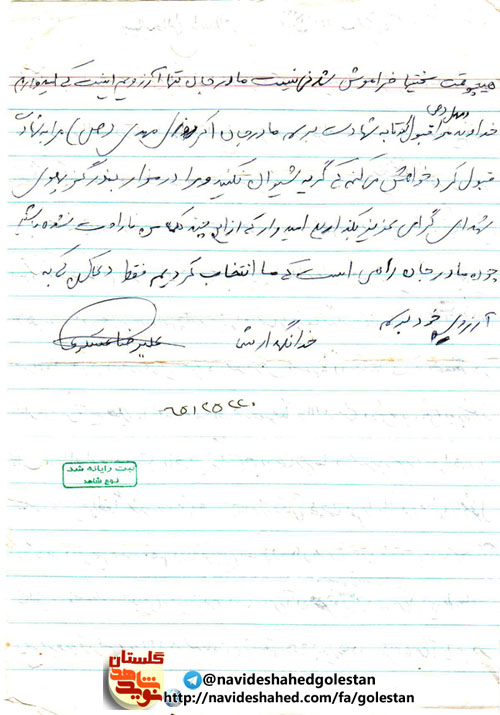 هیچوقت سختیها فراموش شدنی نیست مادرجان تنها آرزویم اینست که امیدوارم
خداوند مرا قبول کند تا به شهادت برسم مادرجان اگر مهدی (عج) مرا به شهادت
قبول کرد خواهش می‌کنم که گریه نکنید و مرا در مزار بندرگز پهلوی
شهدای گرامی عزیز بگذارید امیدوارم که از این چند کلمه من ناراحت نشده باشید
چون مادرجان راهی است که ما انتخاب کردیم فقط دعا کن که به
آرزوی خود برسم
خدانگهدار شما
علیرضا عسکری
ثبت رایانه شد
نوع شاهد
گلستان
نوید شاهد
@navideshahedgolestan
http://navideshahed.com/fa/golestan